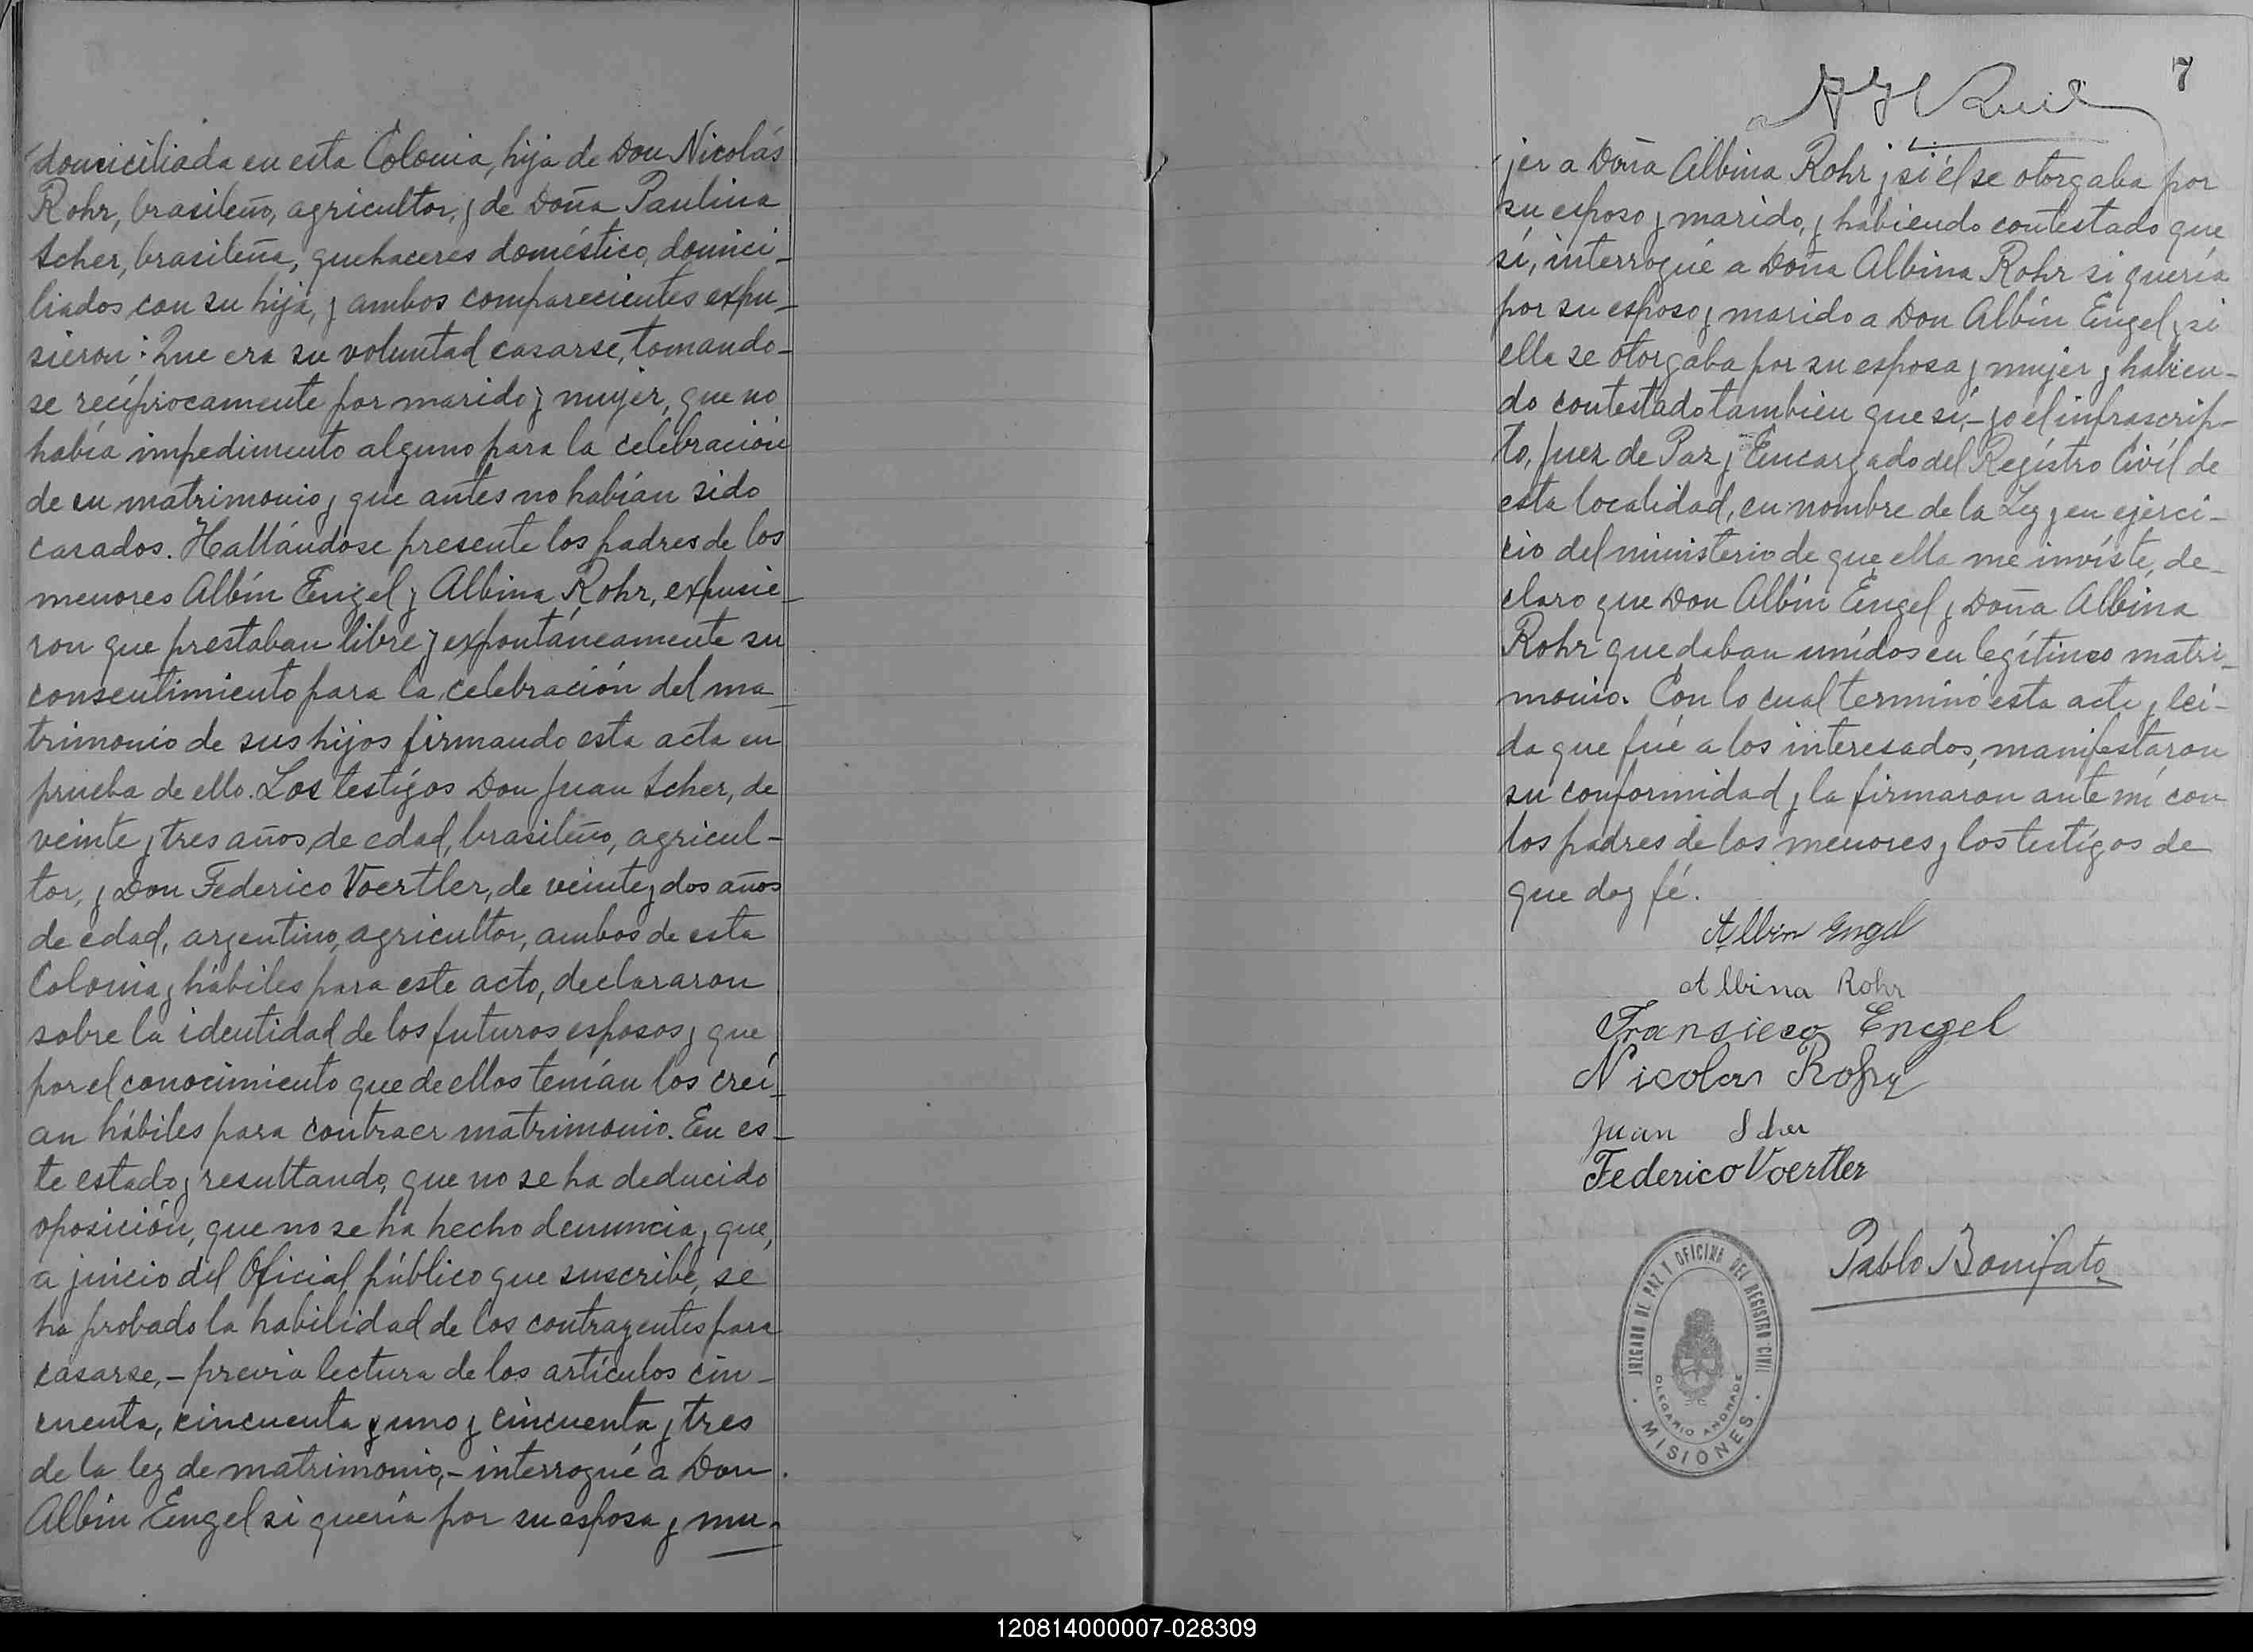 domiciliada en esta Colonia, hija de Don Nicolás
Rohr, brasileño, agricultor, y de Doña Paulina
Scher, brasileña, quehaceres doméstico, domici-
liados con su hija, y ambos comparecientes expu-
sieron: Que era su voluntad casarse, tomando-
se recíprocamente por marido y mujer, que no
había impedimento alguno para la celebración
de su matrimonio y que antes no habían sido
casados. Hallándose presente los padres de los
menores Albín Engel y Albina Rohr, expusie-
ron que prestaban libre y expontáneamente su
consentimiento para la celebración del ma-
trimonio de sus hijos firmando esta acta en
prueba de ello. Los testigos Don Juan Scher, de
veinte y tres años de edad, brasileño, agricul-
tor, y Don Federico Voertler, de veinte y dos años
de edad, argentino, agricultor, ambos de esta
Colonia y hábiles para este acto, declararon
sobre la identidad de los futuros esposos y que
por el conocimiento que de ellos tenían los creí-
an hábiles para contraer matrimonio. En es-
te estado y resultando, que no se ha deducido
oposición, que no se ha hecho denuncia y que,
a juicio del Oficial público que suscribe, se
ha probado la habilidad de los contrayentes para
casarse,- previa lectura de los artículos cin-
cuenta, cincuenta y uno y cincuenta y tres
de la ley de matrimonio,- interrogué a Don
Albín Engel si quería por su esposa y mu-
7
jer a Doña Albina Rohr y si él se otorgaba por
su esposo y marido, y habiendo contestado que
sí, interrogué a Doña Albina Rohr si quería
por su esposo y marido a Don Albín Engel y si
ella se otorgaba por su esposa y mujer y habien-
do contestado tambien que sí,- yo el infrascrip-
to, Juez de Paz y Encargado del Registro Civíl de
esta localidad, en nombre de la Ley y en ejerci-
cio del ministerio de que ella me inviste, de-
claro que Don Albín Engel y Doña Albina
Rohr quedaban unidos en legítimo matri-
monio. Con lo cual terminó esta acta y leí-
da que fué a los interesados, manifestaron
su conformidad y la firmaron ante mí con
los padres de los menores y los testigos de
que doy fé.
Albin Engel
Albina Rohr
Fransisco Engel
Nicolas Rohr
Juan Scher
Federico Voertler
Pablo Bonifato
JUZGADO DE PAZ Y OFICINA DEL REGISTRO CIVIL
OLEGARIO ANDRADE
MISIONES
120814000007-028309